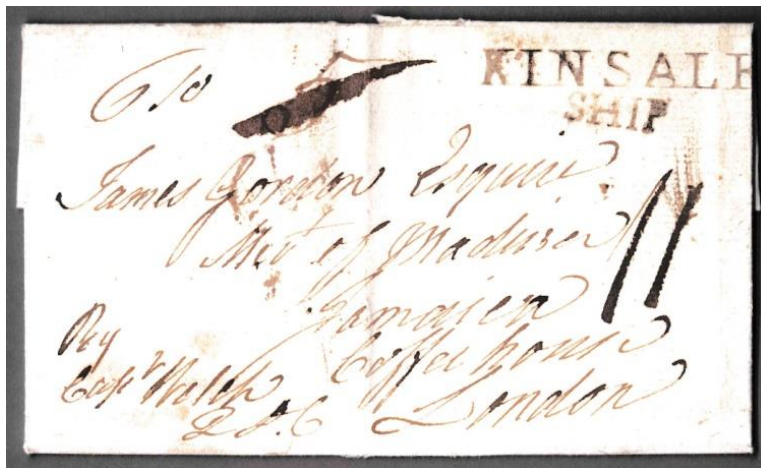 KINSALE
SHIP
James Gordon Esquire
Mert of Madeira
11
Jamaica
Coffee house
London
Capt Welch